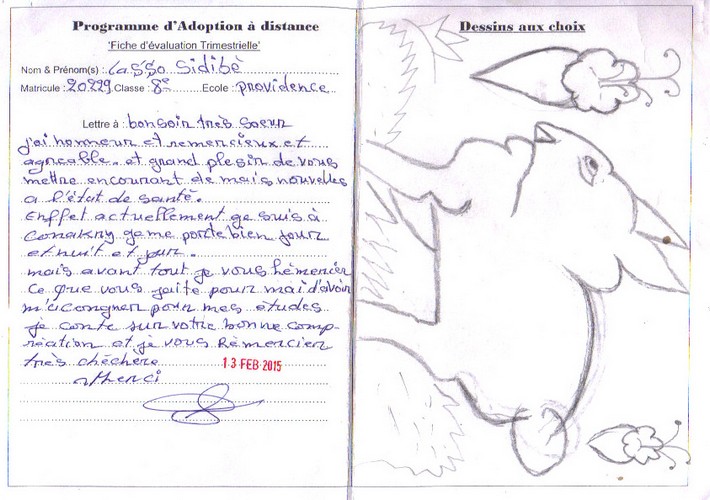 Programme d'Adoption à distance
'Fiche d'évaluation Trimestrielle'
Nom & Prénom(s) : Lasso Sidibè
Matricule : 20229 Classe : 8e Ecole : providence
Lettre à : bonsoin très soeur
j'ai honneur et remercieux et
agreable. et grand plesir de vous
mettre encourant de mais nouvelles
a l'état de santé.
Enffet actuellement ge suis à
Conakry game porte bien jour
et nuit et jour.
mais avant tout je vous Rèmencier
ce que vous faite pour mai d'avoir
m'acongner pour mes études
je conte sur votre bonne comp-
réation et je vous Rèmercier
très chèchère
13 FEB 2015
Merci
Dessins aux choix